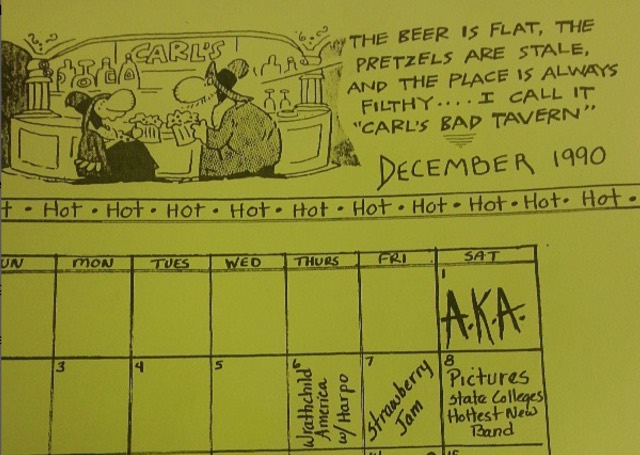 CARL'S
THE BEER IS FLAT, THE
PRETZELS ARE STALE,
AND THE PLACE IS ALWAYS
FILTHY.... I CALL IT
"CARL'S BAD TAVERN"
DECEMBER 1990
t • Hot • Hot • Hot • Hot • Hot • Hot • Hot • Hot • Hot • Hot •
UN MON TUES WED THURS FRI SAT
1
A.K.A.
3 4 5 6 7 8
Wrathchild
America
w/ Harpo
Strawberry
Jam
Pictures
State Colleges
Hottest New
Band